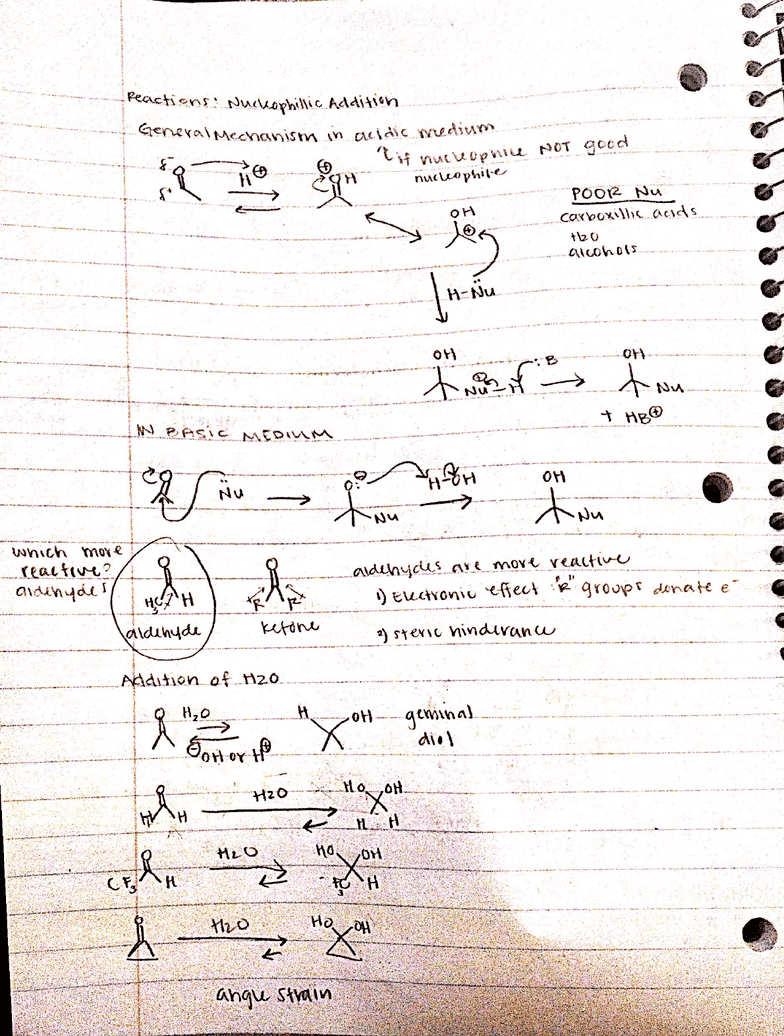 Reactions: Nucleophillic Addition
General Mechanism in acidic medium
↑ if nucleophile NOT good
nucleophile
δ⁻ O δ⁺
H⊕
⊕ OH
OH ⊕
H-N̈u
POOR Nu
carboxillic acids
H2O
alcohols
OH
⊕ Nu-H :B
OH
Nu
+ HB⊕
IN BASIC MEDIUM
O N̈u
O:⊖ Nu
H-OH
OH
Nu
which more
reactive?
aldehydes
O
H3C H
aldehyde
O
R R
Ketone
aldehydes are more reactive
1) Electronic effect "R" groups donate e⁻
2) steric hinderance
Addition of H2O
O H2O
⊖OH or H⊕
H OH
geminal
diol
O
H H
H2O
HO OH
H H
O
CF3 H
H2O
HO OH
F3C H
O H2O
HO OH
angle strain